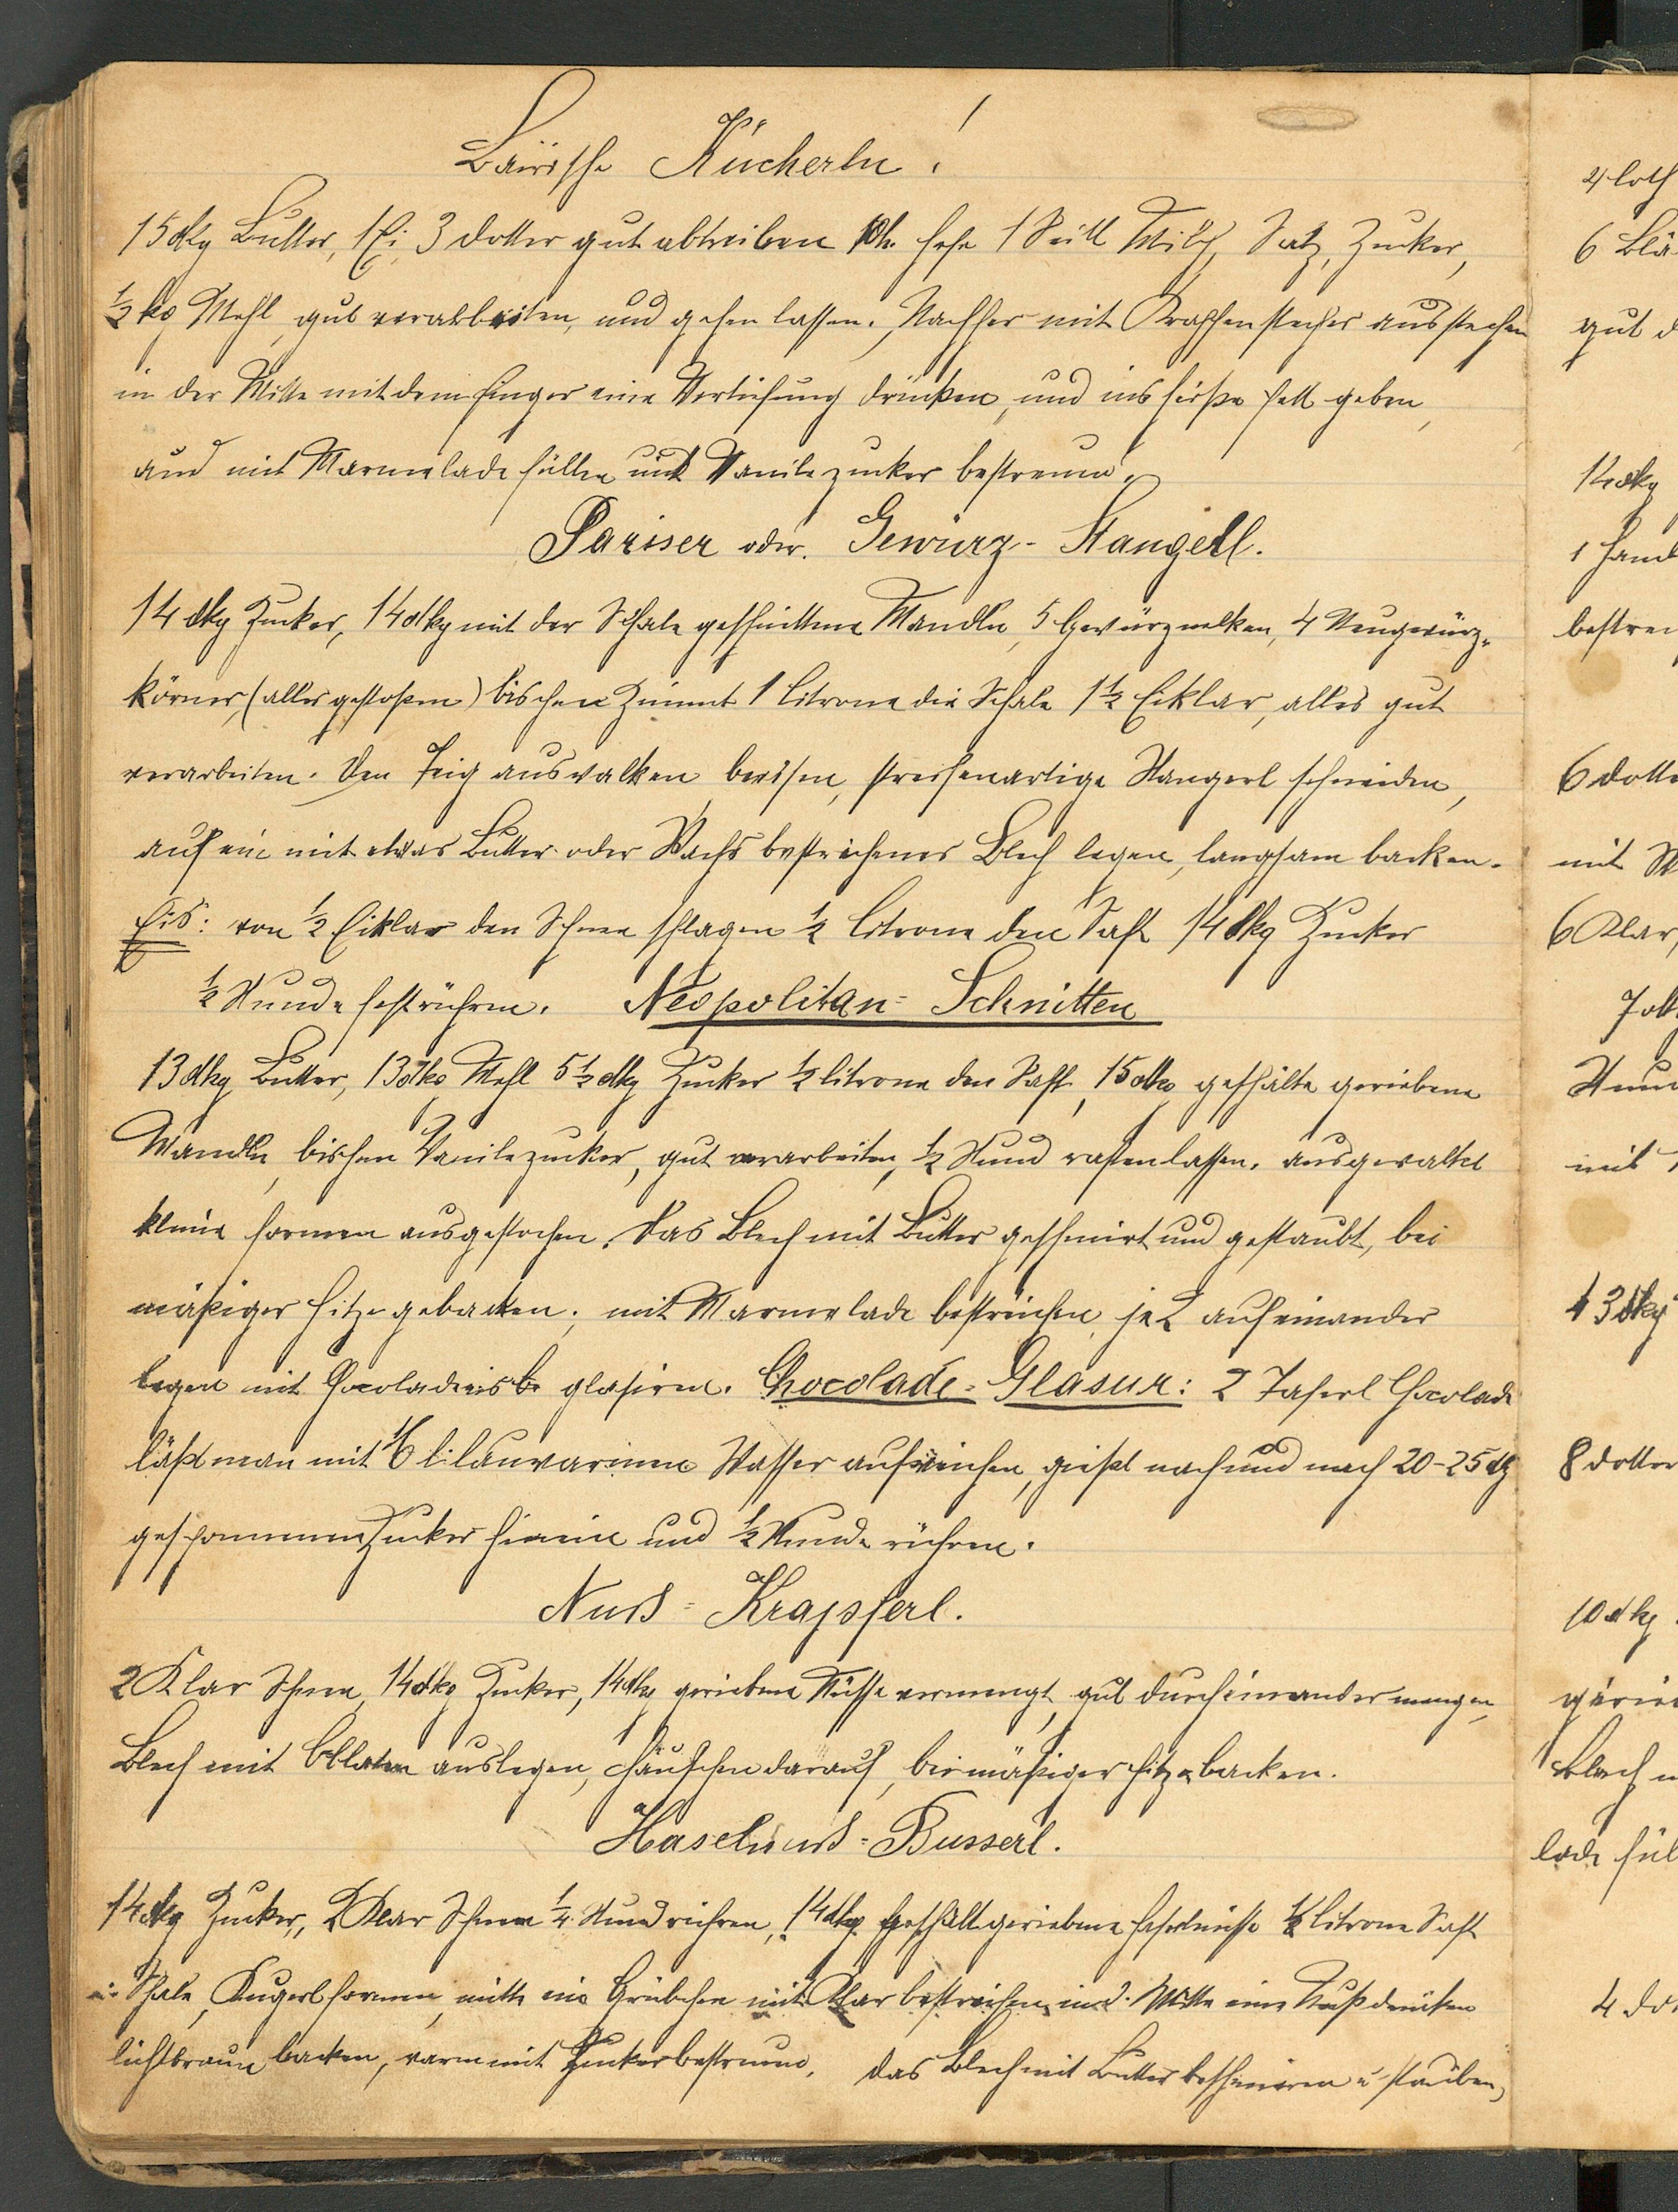 Bairische Kücherln!
15 dkg Butter, 1 Ei, 3 Dotter gut abtreiben Hefe 1 Seitl Milch, Salz, Zucker,
½ ko Mehl, gut verarbeiten, und gehen lassen. Nachher mit Krapfenstecher ausstechen
in der Mitte mit dem Finger eine Vertiefung drücken, und ins heiße Fett geben,
und mit Marmelade füllen und Vanilezucker bestreuen.
Pariser oder Gewürz-Stangerl.
14 dkg Zucker, 14 dkg mit der Schale geschnittene Mandeln, 5 Gewürznelken, 4 Neugewürz-
körner, (alles gestoßen) bischen Zimmt 1 Citrone die Schale 1½ Eiklar, alles gut
verarbeiten. Den Teig auswalken streifenartige Stangerl schneiden,
auf ein mit etwas Butter oder Wachs bestrichenes Blech legen, langsam backen.
Eis: von ½ Eiklar den Schnee schlagen ½ Citrone den Saft 14 dkg Zucker
½ Stunde fest rühren. Neopolitan-Schnitten
13 dkg Butter, 13 dkg Mehl 5½ dkg Zucker ½ Citrone den Saft, 15 dkg geschälte geriebene
Mandeln, bischen Vanilezucker, gut verarbeiten, ½ Stund rasten lassen. ausgewalkt
kleine Formen ausgestochen. Das Blech mit Butter geschmirt und gestaubt, bei
mäßiger Hitze gebacken; mit Marmelade bestreichen, je 2 aufeinander
legen mit glasiren. Chocolade-Glasur: 2 Taferl Chocolade
läßt man mit lauwarmen Wasser aufweichen, gießt nach und nach 20-25 dg
gesponnenen Zucker hinein und ½ Stunde rühren.
Nuß-Krapferl.
2 Klar Schnee, 14 dkg Zucker, 14 dkg geriebene Nüsse vermengt, gut durcheinander mengen,
Blech mit Oblaten auslegen, Häufchen darauf, bei mäßiger Hitze backen.
Haselnuß-Busserl.
14 dkg Zucker, 2 Klar Schnee ¼ Stund rühren, 14 dkg geschält geriebene Haselnüsse ½ Citrone Saft
u. Schale, Kugerl formen, mitte ein Grübchen mit Klar bestreichen, in d. Mitte eine Nuß drücken
lichtbraun backen, warm mit Zucker bestreuen. das Blech mit Butter beschmieren u stauben,
4 Loth
6 Blä
gut d
14 dkg
1 Hand
bestreu
6 Dotte
mit
6 Klar,
Stund
mit
13 dkg
8 Dotter
10 dkg
gerie
Blech
lade fül
4 Do